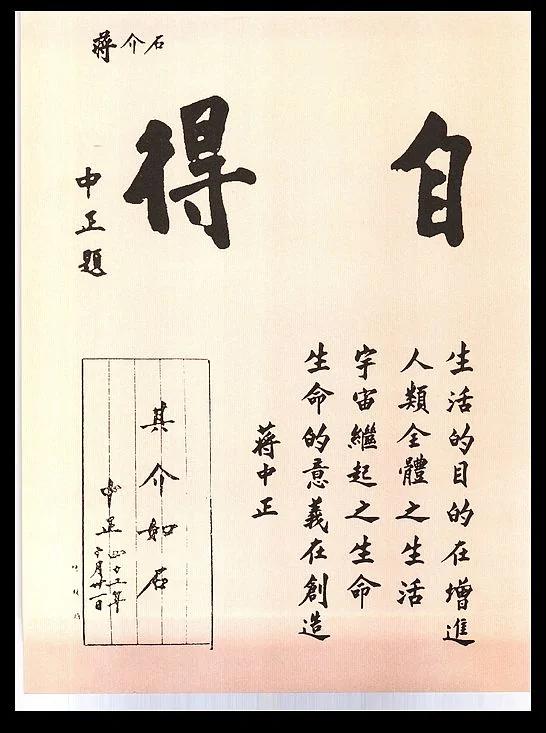 蔣介石
自得
中正題
生活的目的在增進
人類全體之生活
宇宙繼起之生命
生命的意義在創造
蔣中正
其介如石
中正